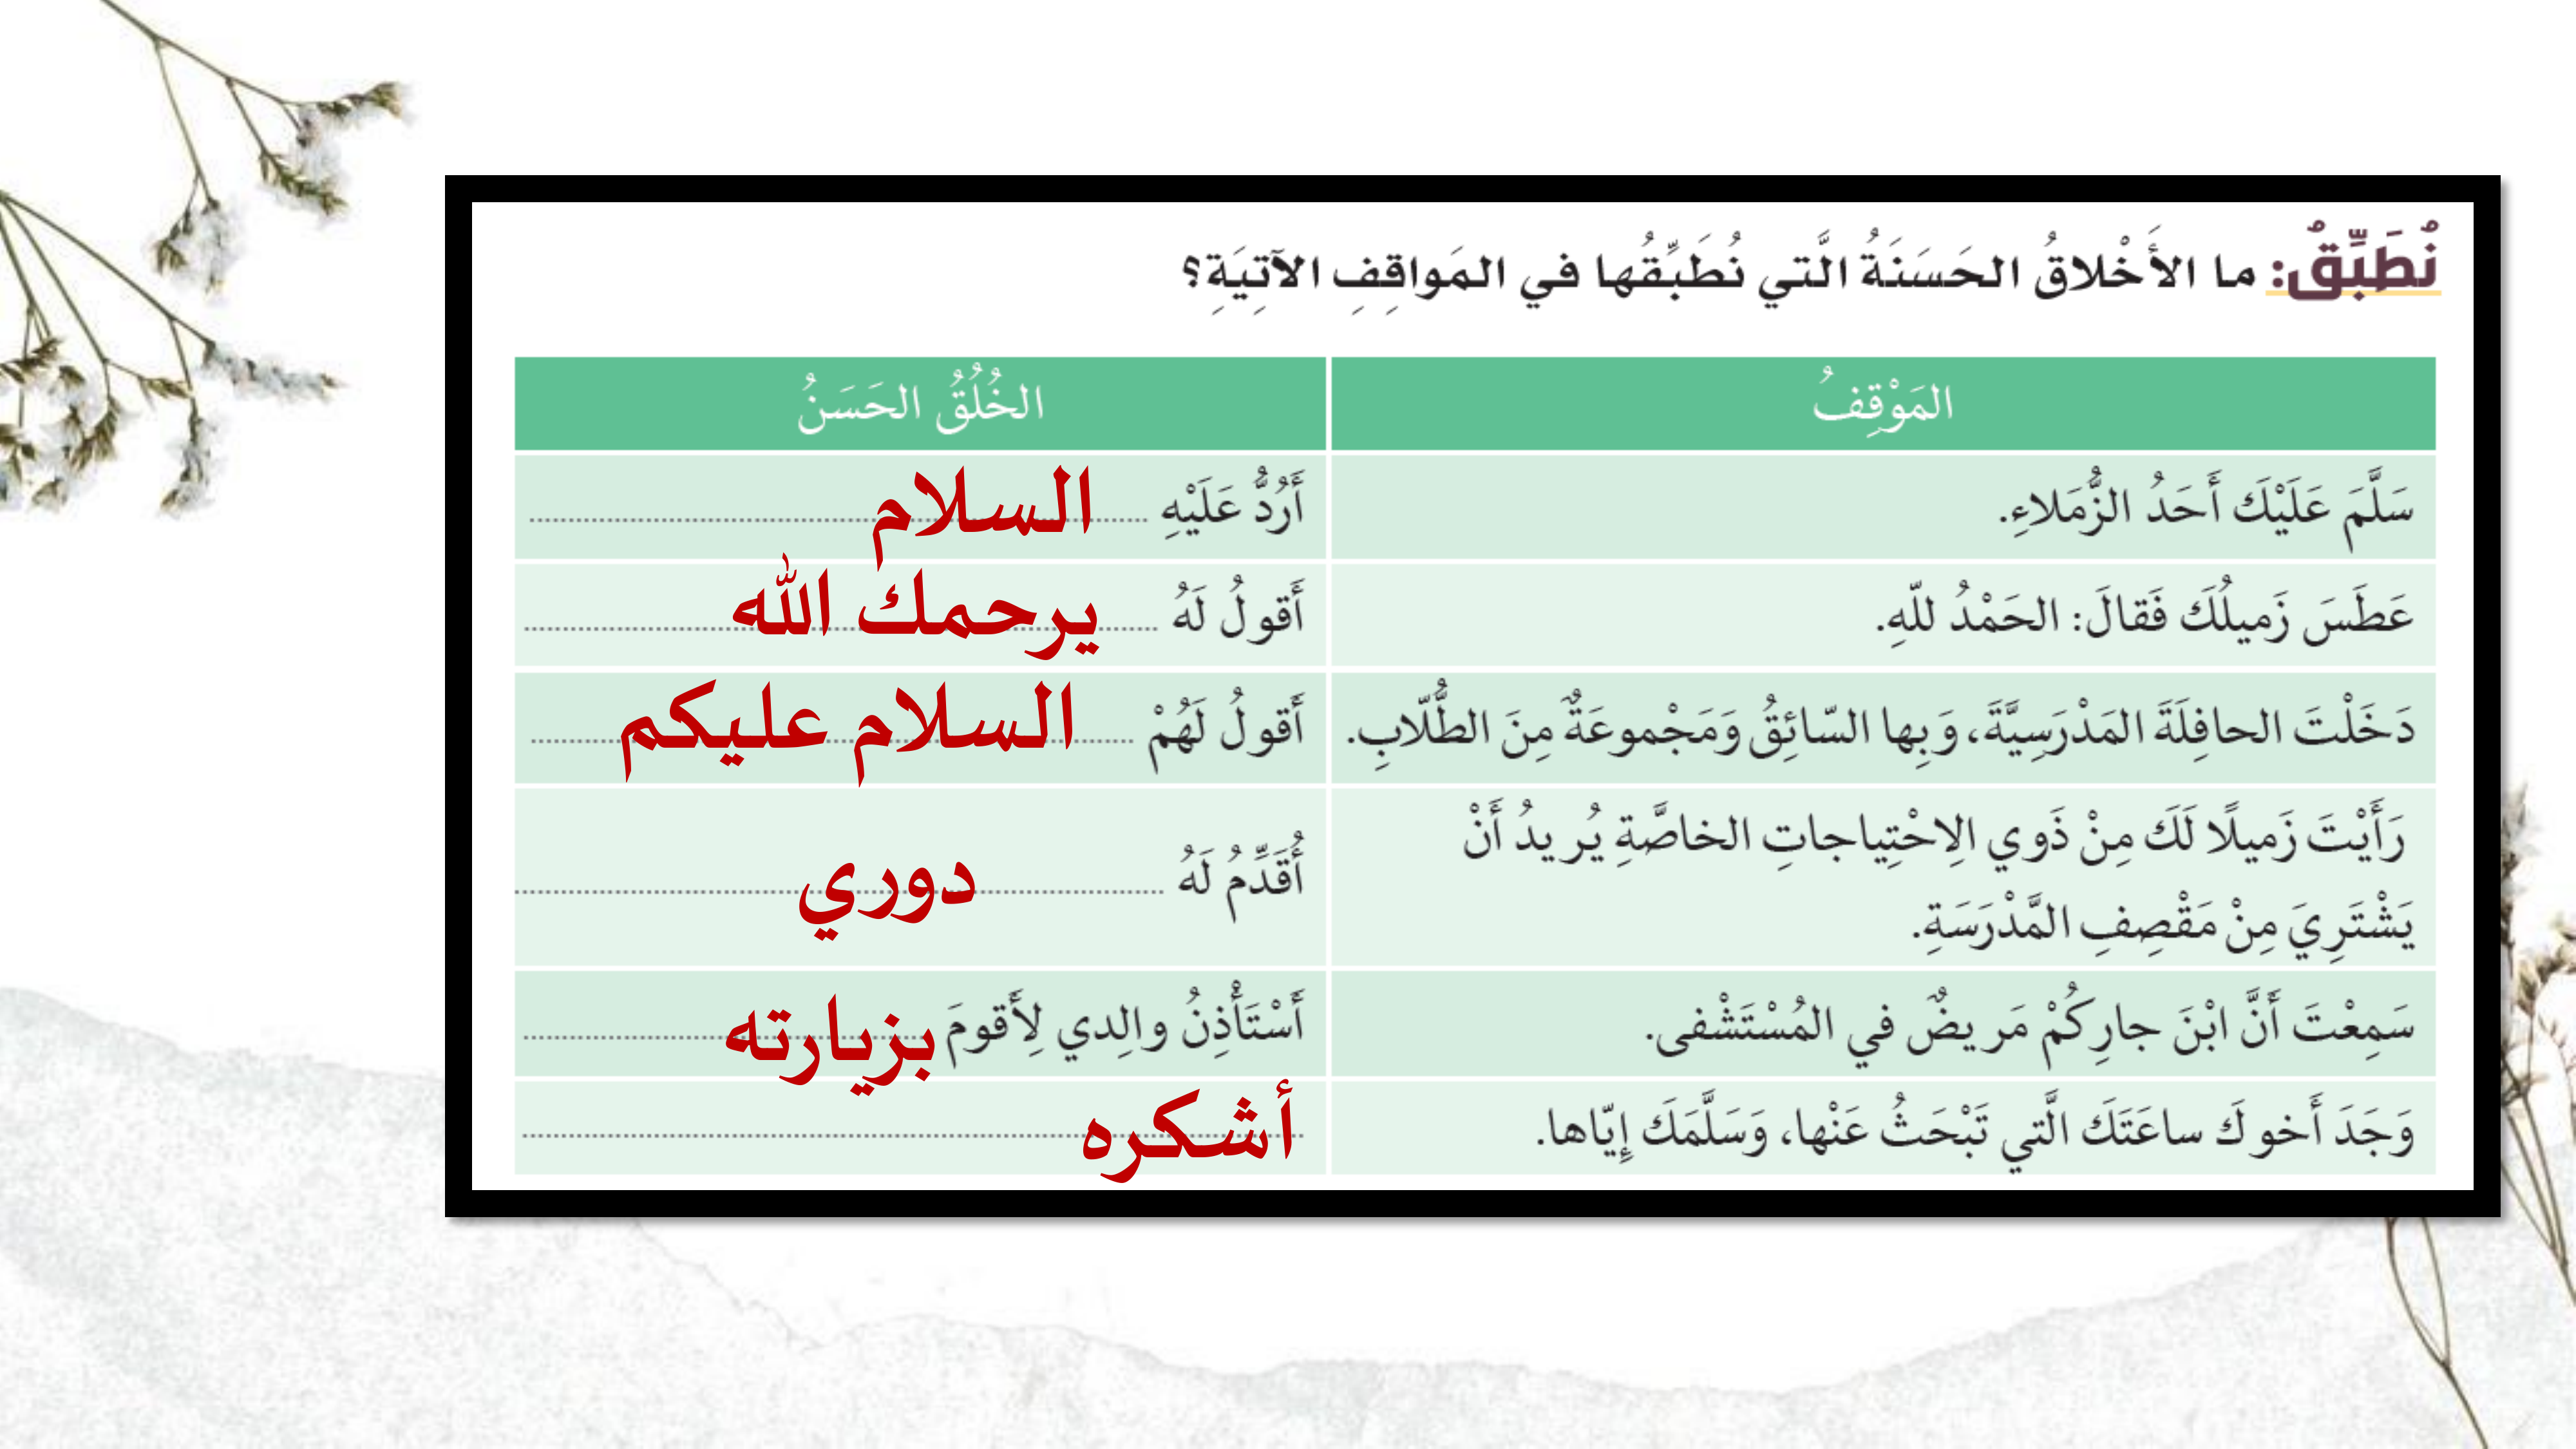 نُطَبِّقُ: ما الأَخْلاقُ الحَسَنَةُ الَّتي نُطَبِّقُها في المَواقِفِ الآتِيَةِ؟
المَوْقِفُ
الخُلُقُ الحَسَنُ
سَلَّمَ عَلَيْكَ أَحَدُ الزُّمَلاءِ.
أَرُدُّ عَلَيْهِ السلام
عَطَسَ زَميلُكَ فَقالَ: الحَمْدُ للّهِ.
أَقولُ لَهُ يرحمك الله
دَخَلْتَ الحافِلَةَ المَدْرَسِيَّةَ، وَبِها السّائِقُ وَمَجْموعَةٌ مِنَ الطُّلّابِ.
أَقولُ لَهُمْ السلام عليكم
رَأَيْتَ زَميلًا لَكَ مِنْ ذَوي الِاحْتِياجاتِ الخاصَّةِ يُريدُ أَنْ
يَشْتَرِيَ مِنْ مَقْصِفِ المَّدْرَسَةِ.
أُقَدِّمُ لَهُ دوري
سَمِعْتَ أَنَّ ابْنَ جارِكُمْ مَريضٌ في المُسْتَشْفى.
أَسْتَأْذِنُ والِدي لِأَقومَ بزيارته
وَجَدَ أَخوكَ ساعَتَكَ الَّتي تَبْحَثُ عَنْها، وَسَلَّمَكَ إِيّاها.
أشكره